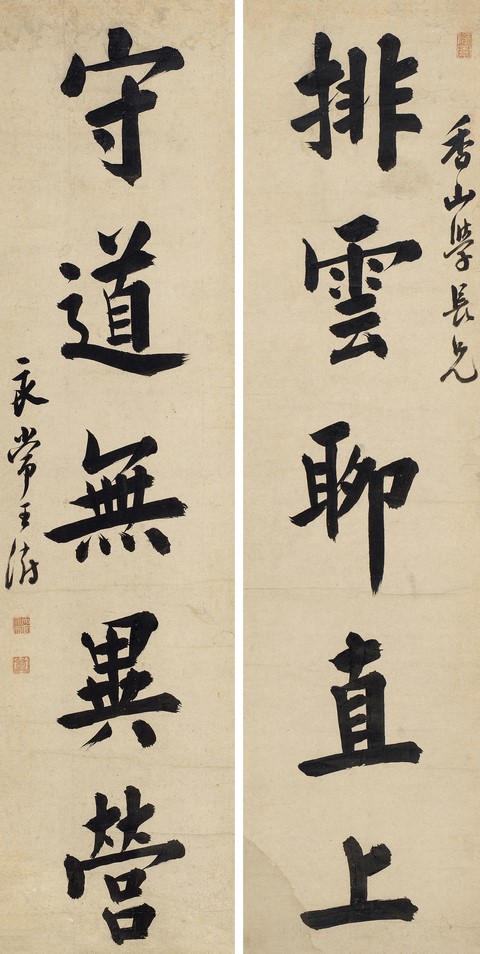 香山學長兄
排雲聊直上
守道無異營
良常王澍